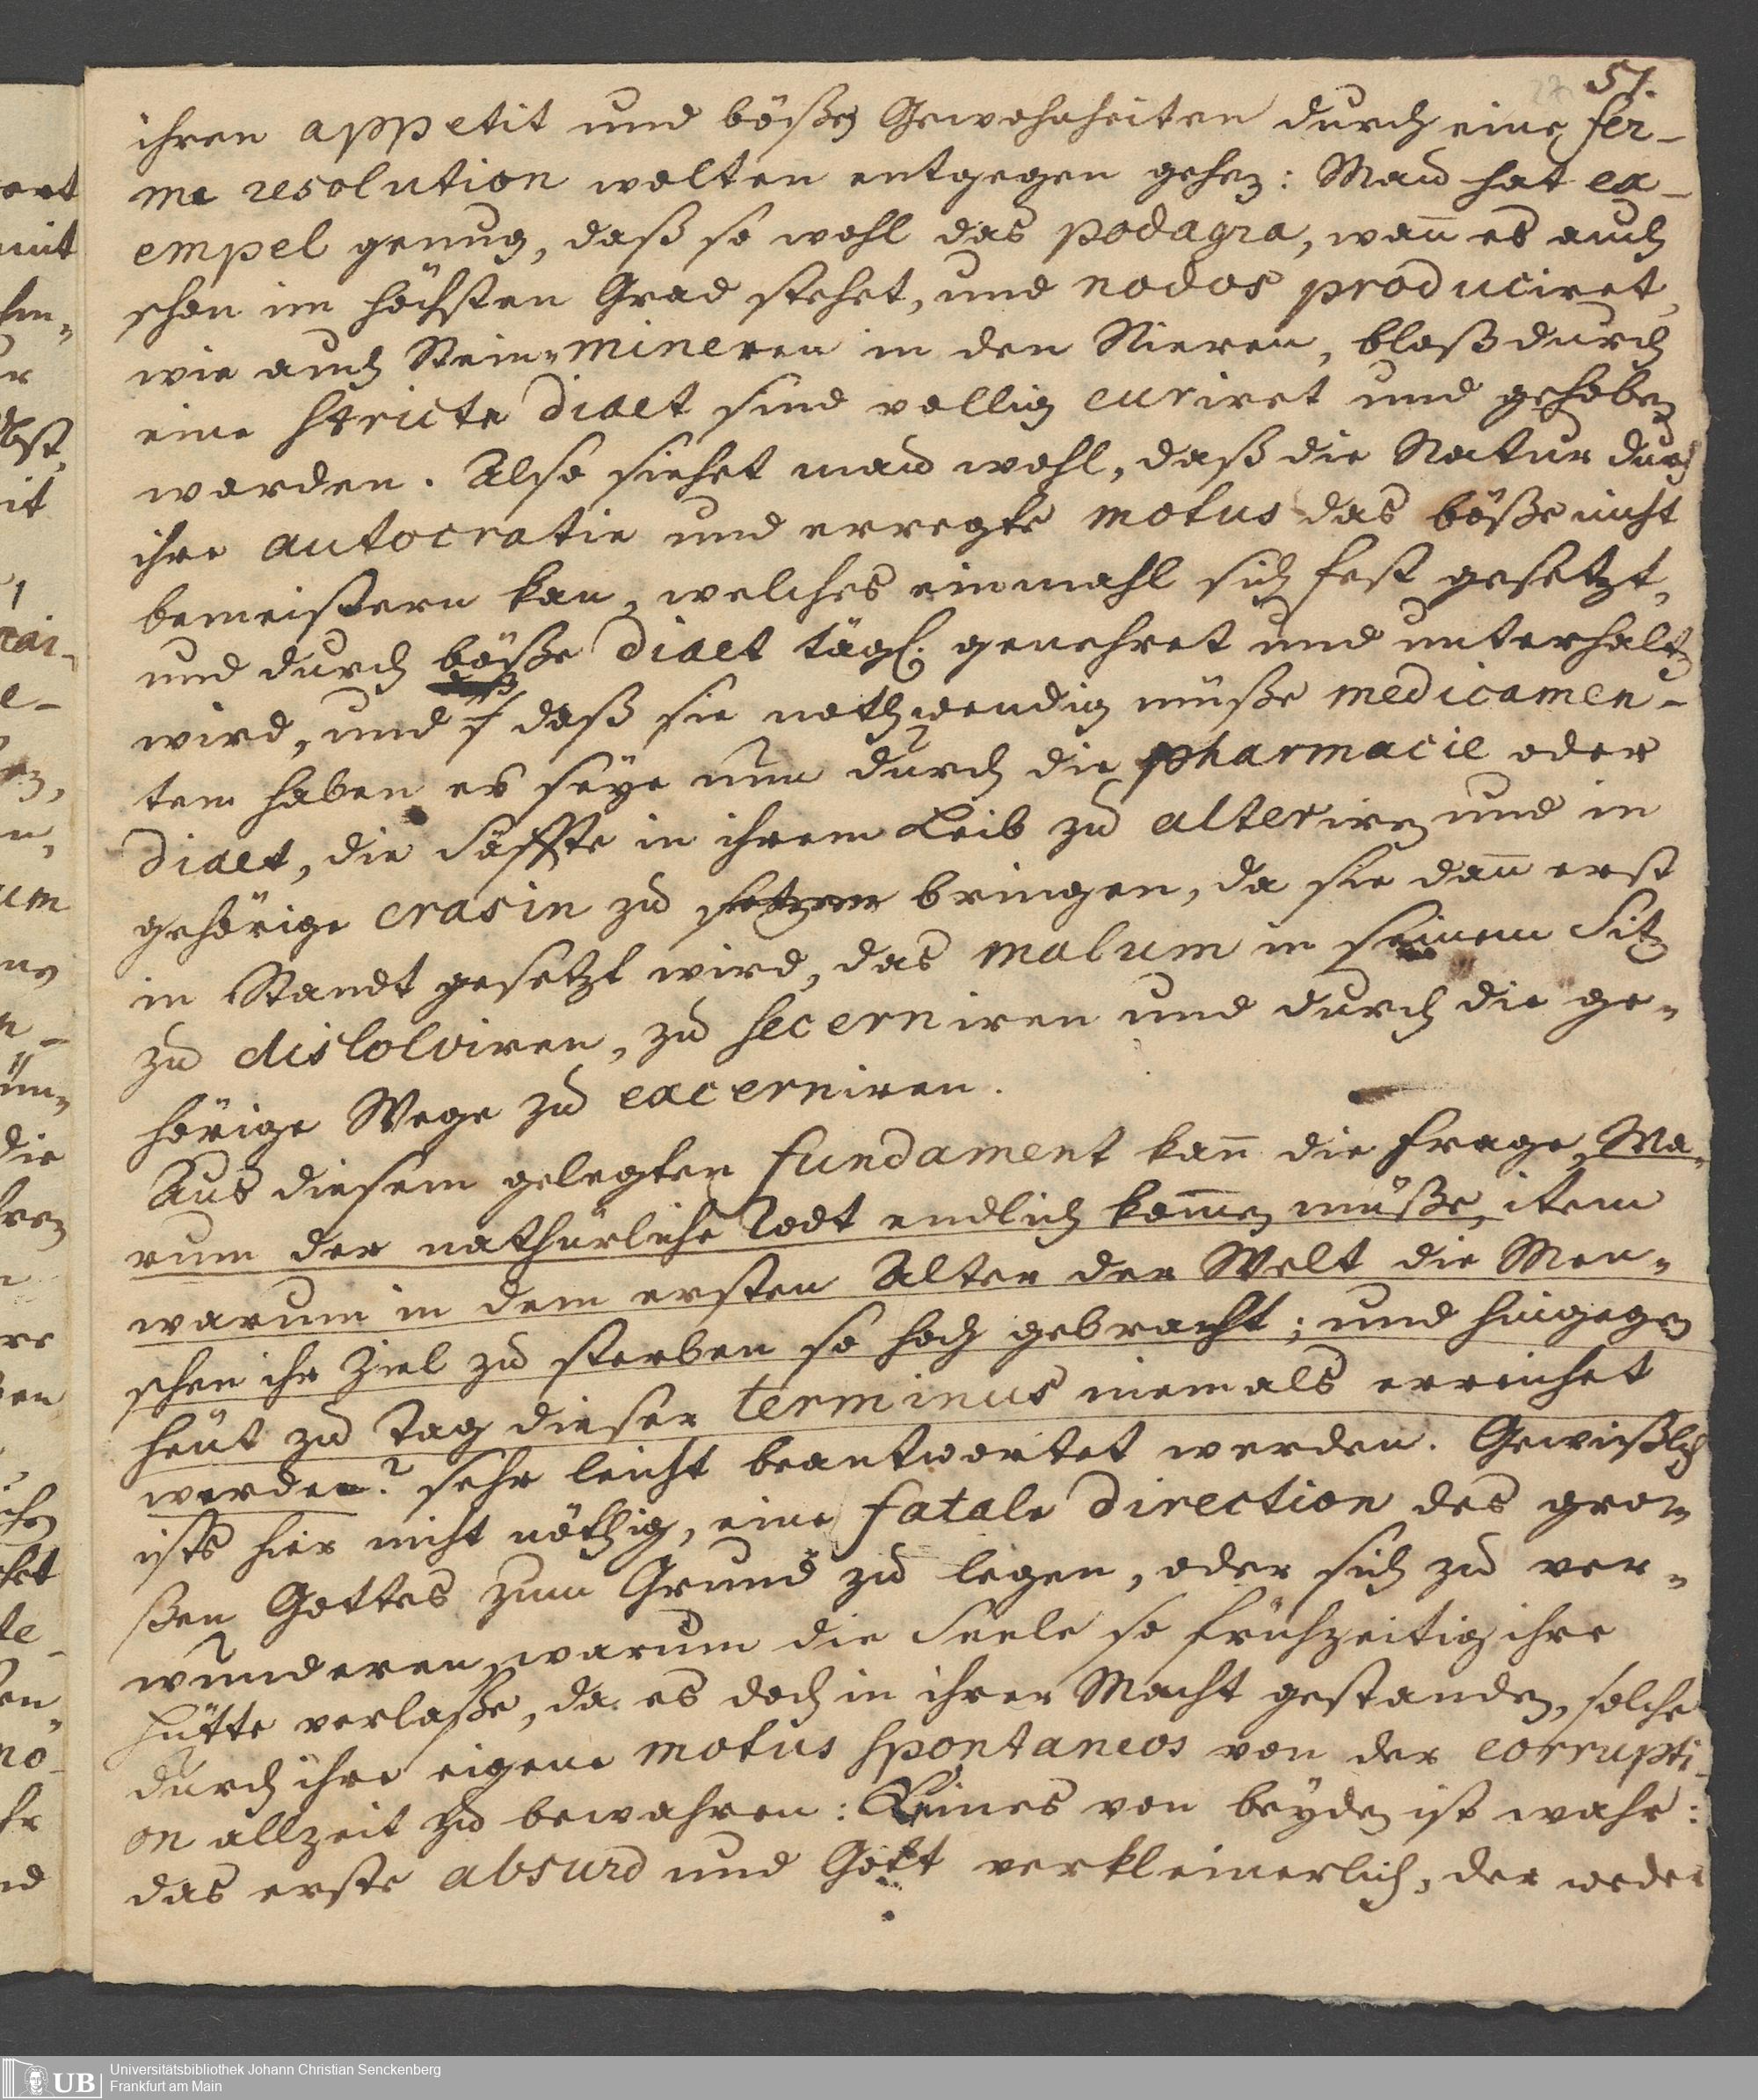 51.
ihren appetit und böße Gewohnheiten durch eine fer-
me resolution wolten entgegen gehen: Man hat ex-
empel genug, daß so wohl das podagra, wañ es auch
schon im höchsten Grad stehet, und nodos produciret,
wie auch Stein-mineren in den Nieren, bloß durch
eine stricte diaet sind vollig curiret und gehoben
worden. Also siehet man wohl, daß die Natur durch
ihre autocratie und erregte motus das böße nicht
bemeistern kan, welches einmahl sich fest gesetzt,
und durch böße diaet tägl. genehret und unterhalten
wird, und daß sie nothwendig müße medicamen-
tem haben es seye nun durch die pharmacie oder
diaet, die Säffte in ihrem Leib zu alteriren und in
gehörige crasin zu setzen bringen, da sie dañ erst
in Standt gesetzt wird, das malum in seinem Sitz
zu dissolviren, zu secerniren und durch die ge-
hörige Wege zu excerniren.
Aus diesem gelegten fundament kañ die Frage, Wa-
rum der nathürliche Todt endlich kom̄en müße, item
warum in dem ersten Alter der Welt die Men-
schen ihr Ziel zu sterben so hoch gebracht; und hingegen
heut zu Tag dieser terminus niemals erreichet
werde? sehr leicht beantwortet werden. Gewißlich
ists hier nicht nöthig, eine fatale direction des gro-
ßen Gottes zum Grund zu legen, oder sich zu ver-
wunderen, warum die Seele so frühzeitig ihre
Hütte verlaße, da es doch in ihrer Macht gestanden, solche
durch ihre eigene motus spontaneos von der corrupti-
on allzeit zu bewahren: Keines von beyden ist wahr:
das erste absurd und Gott verkleinerlich, der weder
UB Universitätsbibliothek Johann Christian Senckenberg
Frankfurt am Main